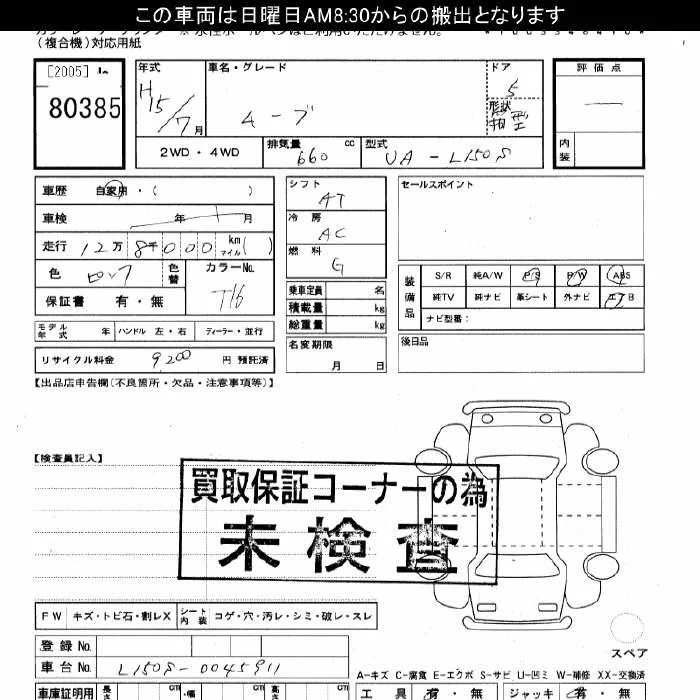 この車両は日曜日AM8:30からの搬出となります
(複合機)対応用紙
[2005]
80385
年式
H15/7月
車名・グレード
ムーブ
ドア
5
形状
箱型
評価点
内装
2WD・4WD
排気量
660 cc
型式
UA-L150S
車歴 自家用・( )
車検 年 月
走行 12万8千000 km マイル( )
色
色替
カラーNo.
T16
保証書 有・無
シフト
AT
冷房
AC
燃料
G
乗車定員 名
積載量 kg
総重量 kg
名変期限
月 日
セールスポイント
装備品
S/R 純A/W P/S P/W ABS
純TV 純ナビ 革シート 外ナビ エアB
ナビ型番:
後日品
モデル年式 年 ハンドル 左・右 ディーラー・並行
リサイクル料金 9200 円 預託済
【出品店申告欄(不良箇所・欠品・注意事項等)】
【検査員記入】
買取保証コーナーの為
未検査
FW キズ・トビ石・割レX シート内装 コゲ・穴・汚レ・シミ・破レ・スレ
スペア
登録No.
車台No. L150S-0045911
A-キズ C-腐食 E-エクボ S-サビ U-凹ミ W-補修 XX-交換済
車庫証明用 長さ cm 幅 cm 高さ cm
工具 有・無 ジャッキ 有・無